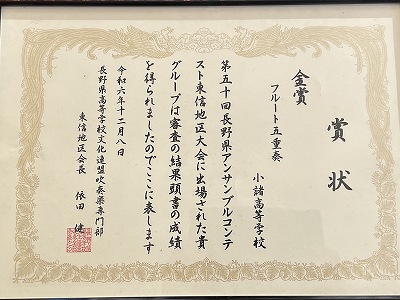 賞状
金賞
フルート五重奏
小諸高等学校
第五十回長野県アンサンブルコンテ
スト東信地区大会に出場された貴
グループは審査の結果頭書の成績
を得られましたのでここに表します
令和六年十二月八日
長野県高等学校文化連盟吹奏楽専門部
東信地区会長 依田 健